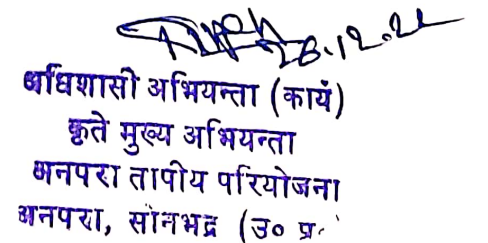 28.12.22
अधिशासी अभियन्ता (कार्य)
कृते मुख्य अभियन्ता
अनपरा तापीय परियोजना
अनपरा, सोनभद्र (उ० प्र०